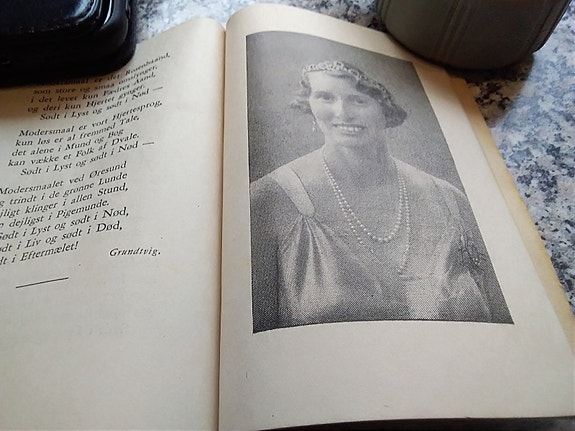 Modersmaal er det Rosenbaand,
som store og smaa omslynger,
i det lever kun Fædres Aand,
og deri kun Hjertet gynger.
Sødt i Lyst og sødt i Nød —
Modersmaal er vort Hjertesprog,
kun løs er al fremmed Tale,
det alene i Mund og Bog
kan vække et Folk af Dvale.
Sødt i Lyst og sødt i Nød —
Modersmaalet ved Øresund
trindt i de grønne Lunde
ligt klinger i allen Stund,
dejligst i Pigemunde.
Sødt i Lyst og sødt i Nød,
dt i Liv og sødt i Død,
dt i Eftermælet!
Grundtvig.